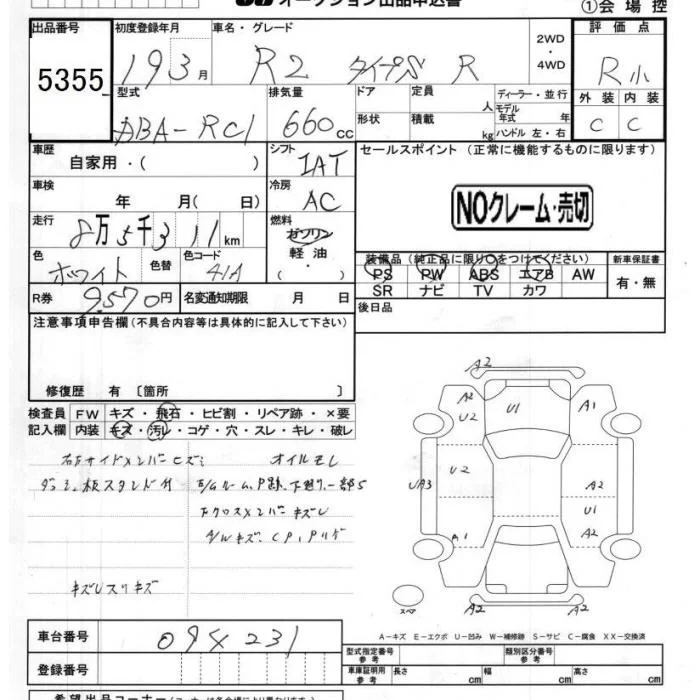 オークション出品申込書
①会場控
出品番号 初度登録年月 車名・グレード 2WD・4WD 評価点
5355 19 3月 R2 タイプS R R小
外装 内装
C C
型式 排気量 ドア 定員 人 ディーラー・並行
ABA-RC1 660 CC 形状 積載 kg モデル年式 年
ハンドル 左・右
車歴 シフト セールスポイント (正常に機能するものに限ります)
自家用・( ) IAT
車検 冷房
年 月( 日) AC
NOクレーム・売切
走行 燃料
8万5千311km ガソリン
軽油
( ・ )
色 色替 色コード
ホワイト 41A
装備品 (純正品に限り○をつけてください) 新車保証書
PS PW ABS エアB AW 有・無
SR ナビ TV カワ
R券 9,570円 名変通知期限 月 日
後日品
注意事項申告欄(不具合内容等は具体的に記入して下さい)
修復歴 有 〔箇所 〕
検査員 FW キズ・飛石・ヒビ割・リペア跡・×要
記入欄 内装 キズ・汚レ・コゲ・穴・スレ・キレ・破レ
右サイドメンバーヒズミ オイルモレ
下クロスメンバーキズU
A/Wキズ、
A2
A2 U2 U1 A1
U2 A2
UA3 U1
A1 A2
スペア A2 A2
A-キズ E-エクボ U-凹み W-補修跡 S-サビ C-腐食 XX-交換済
車台番号 094231
型式指定番号 参考 類別区分番号 参考
登録番号 車庫証明用 参考 長さ cm 幅 cm 高さ cm
希望出品コーナー